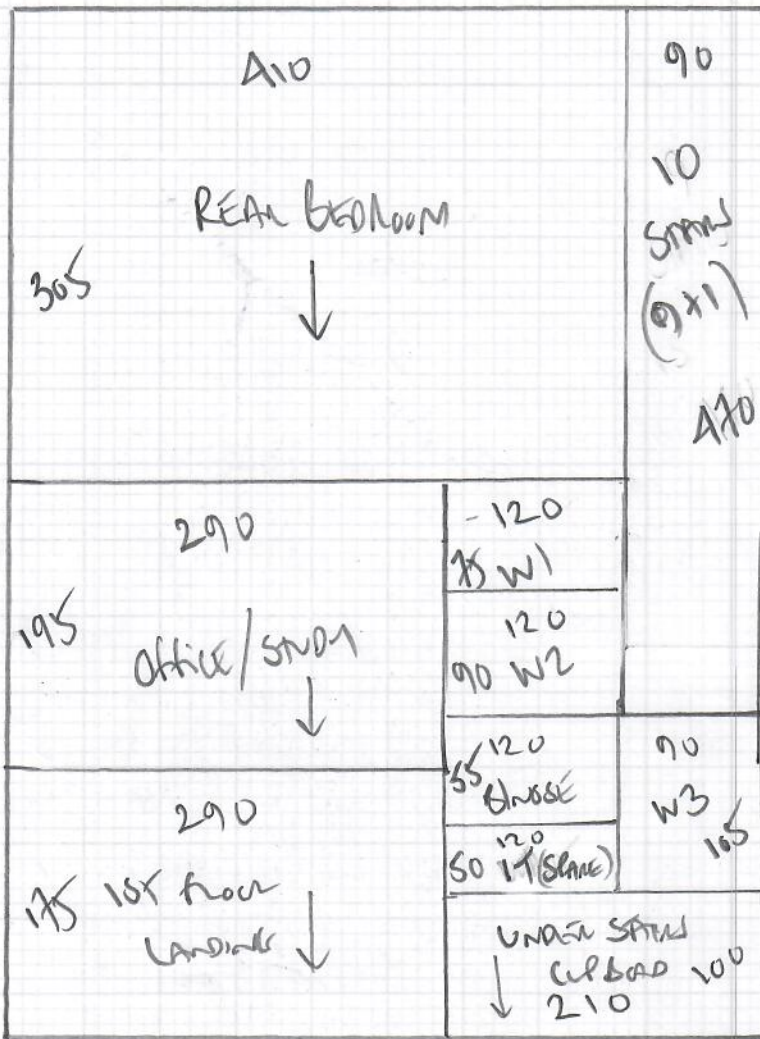 410
REAR BEDROOM
305
90
10
STAIRS
(9X1)
470
290
195
OFFICE/STUDY
120
75 W1
120
90 W2
120
55 B/NOSE
120
50 1T (SPARE)
90
W3
105
290
175 1ST FLOOR
LANDING
UNDER STAIRS
CUPBOAD 100
210